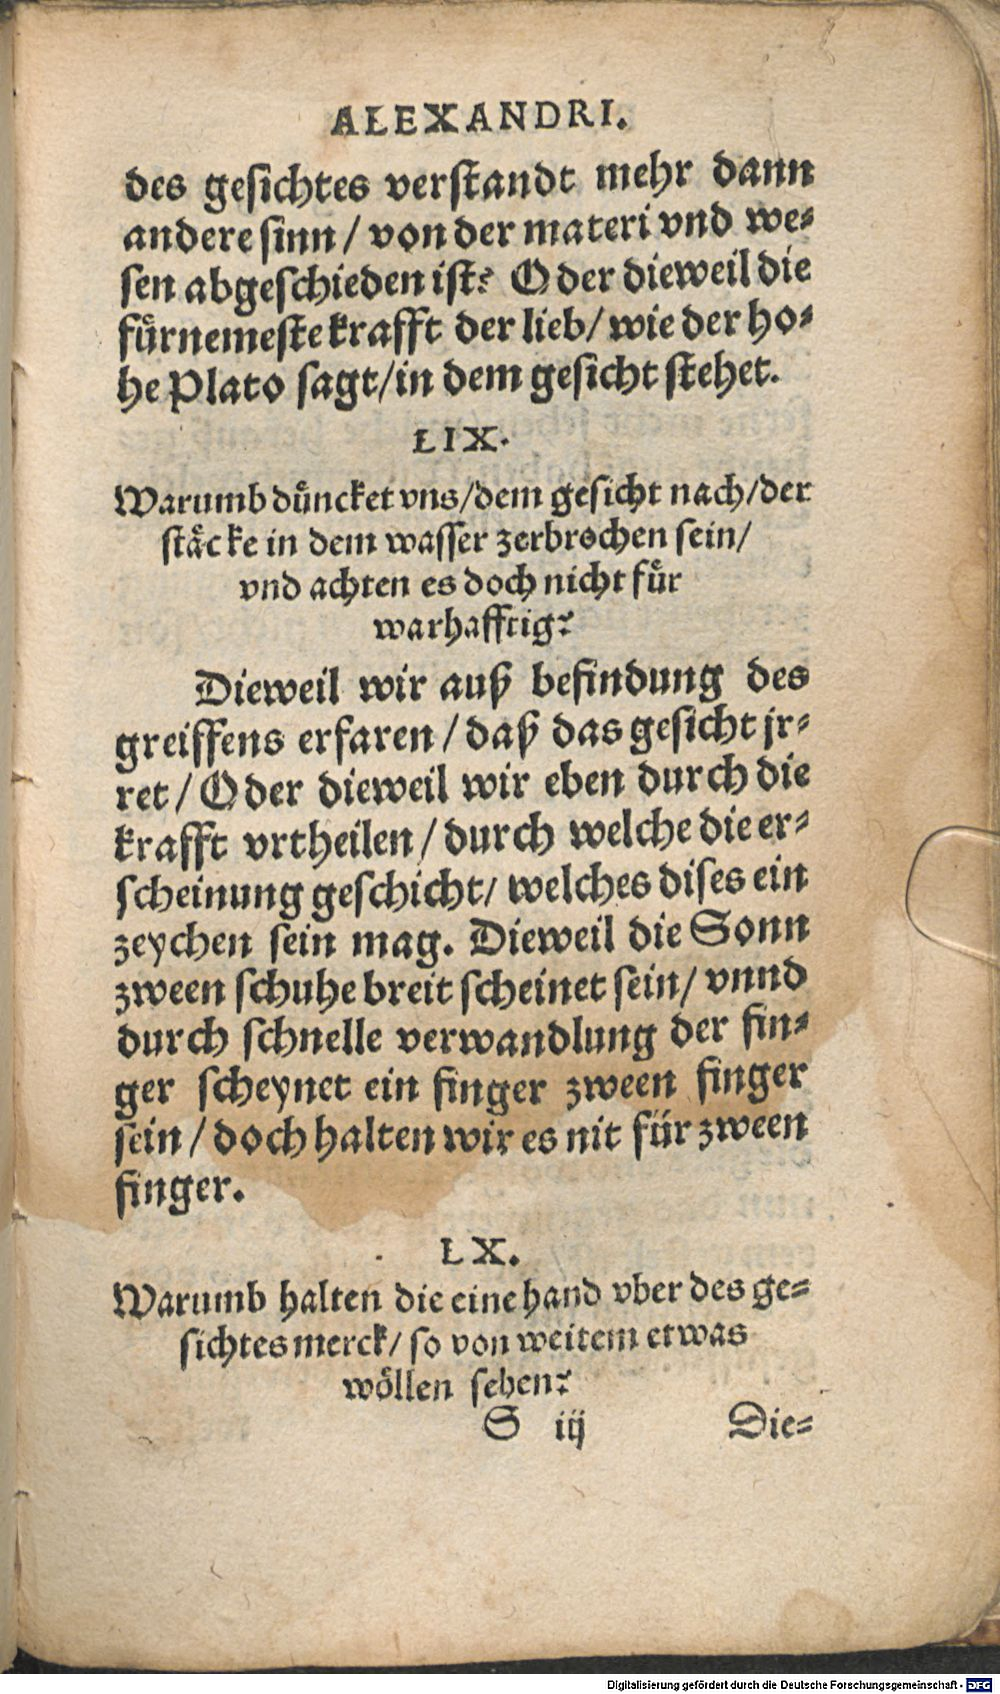 ALEXANDRI.
des gesichtes verstandt mehr dann
andere sinn / von der materi vnd we-
sen abgeschieden ist? Oder dieweil die
fuͤrnemeste krafft der lieb / wie der ho-
he Plato sagt / in dem gesicht stehet.
LIX.
Warumb duͤncket vns / dem gesicht nach / der
staͤcke in dem wasser zerbrochen sein /
vnd achten es doch nicht fuͤr
warhafftig?
Dieweil wir auß befindung des
greiffens erfaren / daß das gesicht jr-
ret / Oder dieweil wir eben durch die
krafft vrtheilen / durch welche die er-
scheinung geschicht / welches dises ein
zeychen sein mag. Dieweil die Sonn
zween schuhe breit scheinet sein / vnnd
durch schnelle verwandlung der fin-
ger scheynet ein finger zween finger
sein / doch halten wir es nit für zween
finger.
LX.
Warumb halten die eine hand vber des ge-
sichtes merck / so von weitem etwas
woͤllen sehen?
S iij Die-
Digitalisierung gefördert durch die Deutsche Forschungsgemeinschaft - DFG